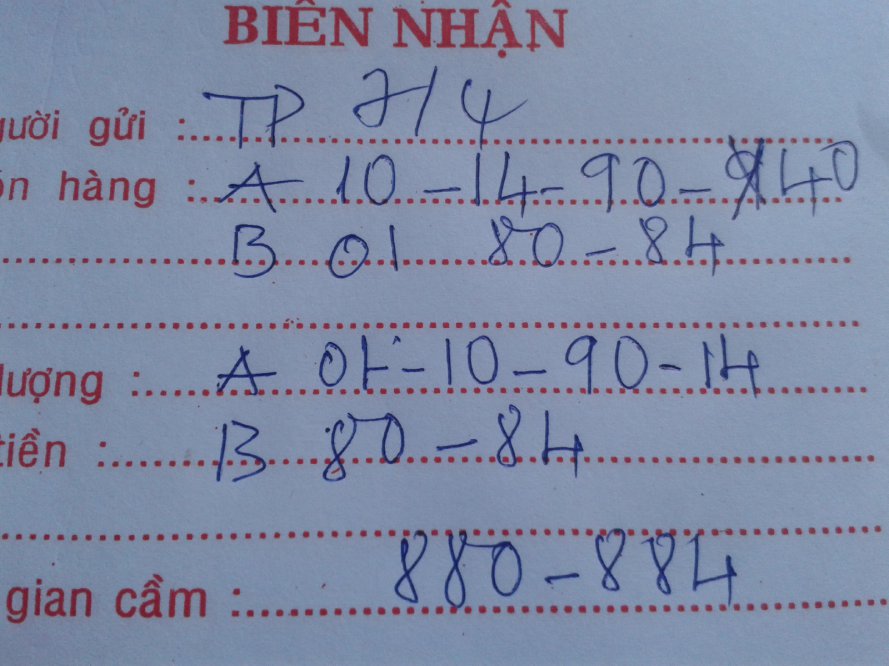 BIÊN NHẬN
gười gửi : TP 7/4
n hàng : A 10-14-90- 40
B 01 80-84
lượng : A 01-10-90-14
tiền : B 80-84
gian cầm : 880-884